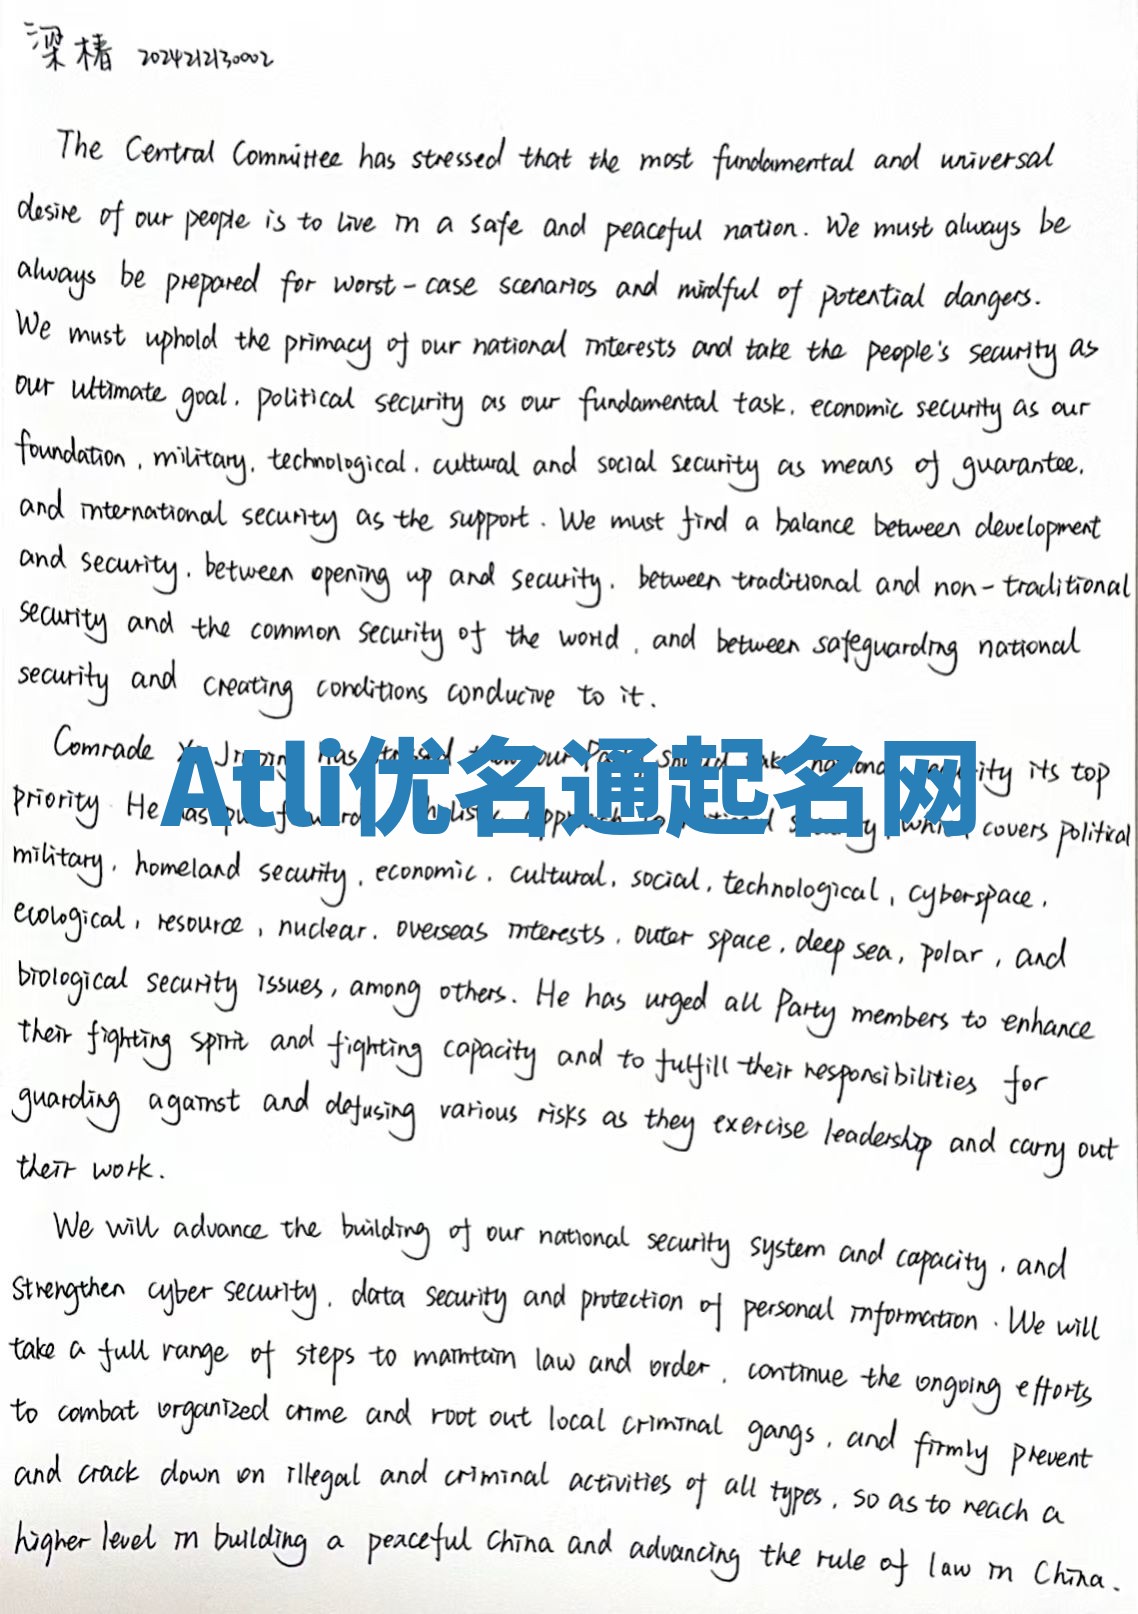 梁椿 2024212130002
The Central Committee has stressed that the most fundamental and universal
desire of our people is to live in a safe and peaceful nation. We must always be
always be prepared for worst-case scenarios and mindful of potential dangers.
We must uphold the primacy of our national interests and take the people's security as
our ultimate goal, political security as our fundamental task, economic security as our
foundation, military, technological, cultural and social security as means of guarantee,
and international security as the support. We must find a balance between development
and security, between opening up and security, between traditional and non-traditional
security and the common security of the world, and between safeguarding national
security and creating conditions conducive to it.
Comrade Jinping has our should its top
Atli优名通起名网
priority. He has covers political
military, homeland security, economic, cultural, social, technological, cyberspace,
ecological, resource, nuclear, overseas interests, outer space, deep sea, polar, and
biological security issues, among others. He has urged all Party members to enhance
their fighting spirit and fighting capacity and to fulfill their responsibilities for
guarding against and defusing various risks as they exercise leadership and carry out
their work.
We will advance the building of our national security system and capacity, and
strengthen cyber security, data security and protection of personal information. We will
take a full range of steps to maintain law and order, continue the ongoing efforts
to combat organized crime and root out local criminal gangs, and firmly prevent
and crack down on illegal and criminal activities of all types, so as to reach a
higher level in building a peaceful China and advancing the rule of law in China.